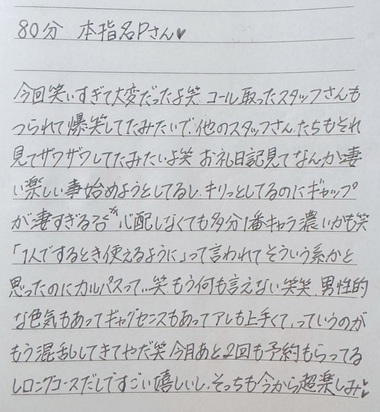 80分 本指名Pさん♥
今回笑いすぎて大変だったよ笑 コール取ったスタッフさんも
つられて爆笑してたみたいで、他のスタッフさんたちもそれ
見てザワザワしてたみたいよ笑 お礼日記見てなんか凄
い楽しい事始めようとしてるし、キリッとしてるのにギャップ
が凄すぎる 心配しなくても多分1番キャラ濃いかも笑
「1人でするとき使えるように」って言われてそういう系かと
思ったのにカルパスって…笑 もう何も言えない笑笑 男性的
な色気もあってギャグセンスもあってアレも上手くて、っていうのが
もう混乱してきてやだ笑 今月あと2回も予約もらってる
しロングコースだしですごい嬉しいし、そっちも今から超楽しみ♥